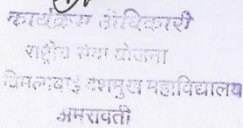 कार्यक्रम अधिकारी
राष्ट्रीय सेवा योजना
विमलाबाई देशमुख महाविद्यालय
अमरावती